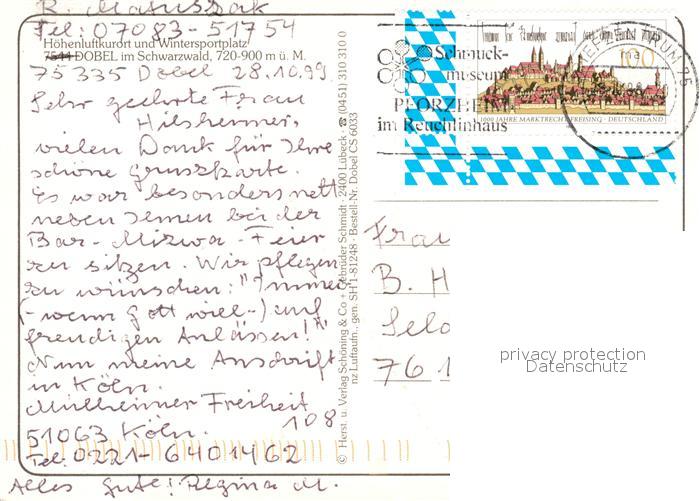 R. Matuszak
Tel: 07083-51754
Höhenluftkurort und Wintersportplatz
7544 DOBEL im Schwarzwald, 720-900 m ü. M.
75335 Dobel 28.10.99
Sehr geehrte Frau
Hilsheimer,
vielen Dank für Ihre
schöne Grusskarte.
Es war besonders nett
neben Ihnen bei der
Bar-Mizwa-Feier
zu sitzen. Wir pflegen
zu wünschen: "Immer
(-wenn Gott will-) auf
freudigen Anlässen!"
Nun meine Anschrift
in Köln.
Mülheimer Freiheit
108
51063 Köln.
Tel: 0221-6401462
Alles Gute! Regina M.
© Herst. u. Verlag Schöning & Co + Gebrüder Schmidt · 2400 Lübeck · ☎ (0451) 310 310 0
nz Luftaufn., gen. SH 1-81248 · Bestell-Nr. Dobel CS 6033
Schmuck-
museum
PFORZHEIM
im Reuchlinhaus
100
1000 JAHRE MARKTRECHT FREISING · DEUTSCHLAND
BRIEFZENTRUM 75
Frau
B. H
76 1
privacy protection
Datenschutz